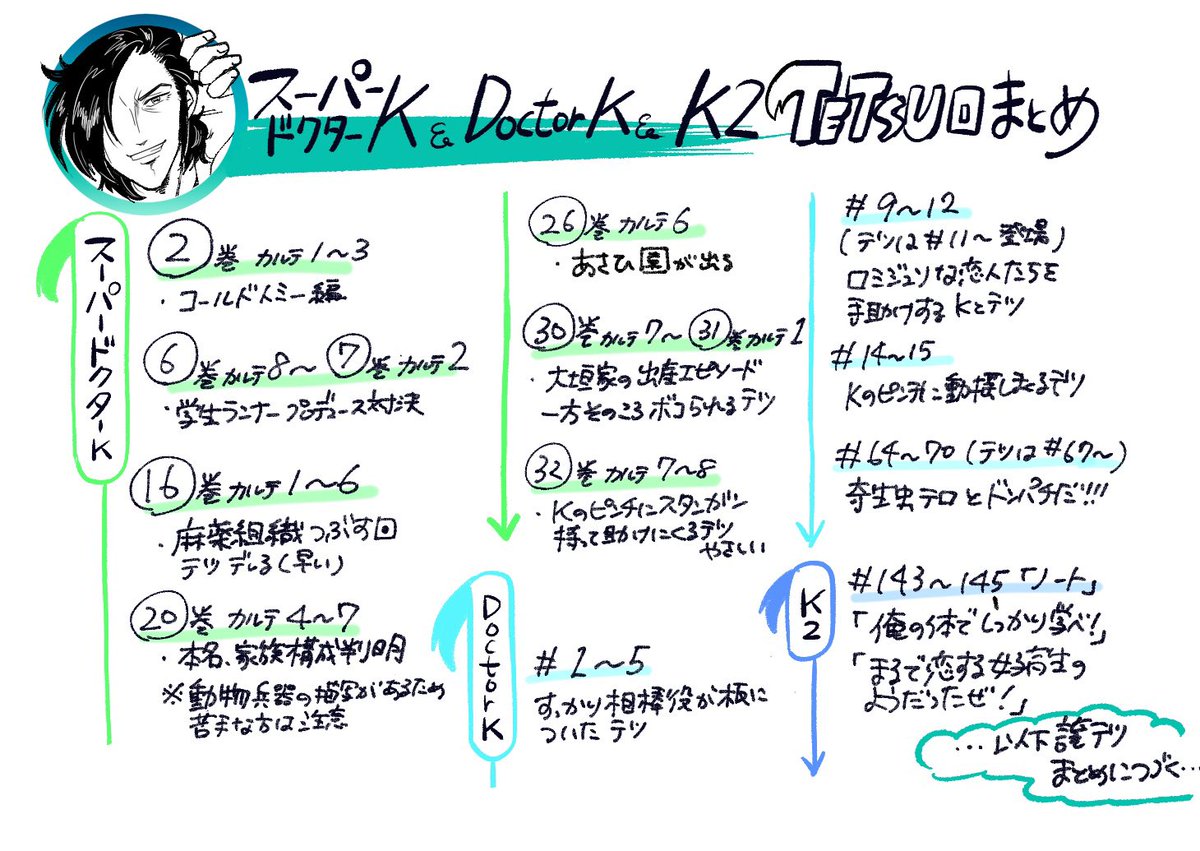 スーパードクターK & DoctorK & K2 TETSU回まとめ
スーパードクターK
②巻 カルテ1〜3
・コールドトミー編
⑥巻カルテ8〜⑦巻カルテ2
・学生ランナープロデュース対決
⑯巻カルテ1〜6
・麻薬組織つぶす回
テツデレる(早い)
⑳巻 カルテ4〜7
・本名、家族構成判明
※動物兵器の描写があるため
苦手な方は注意
㉖巻カルテ6
・あさひ園が出る
㉚巻カルテ7〜㉛巻カルテ1
・大垣家の出産エピソード
一方そのころボコられるテツ
㉜巻カルテ7〜8
・Kのピンチにスタンガン
持って助けにくるテツ
やさしい
DoctorK
#1〜5
すっかり相棒役が板に
ついたテツ
#9〜12
(テツは#11〜登場)
ロミジュリな恋人たちを
手助けするKとテツ
#14〜15
Kのピンチに動揺しまくるテツ
#64〜70(テツは#67〜)
寄生虫テロとドンパチだ!!!
K2
#143〜145「ノート」
「俺の体でしっかり学べ!」
「まるで恋する女子高生の
ようだったぜ!」
…以下譲テツ
まとめにつづく…